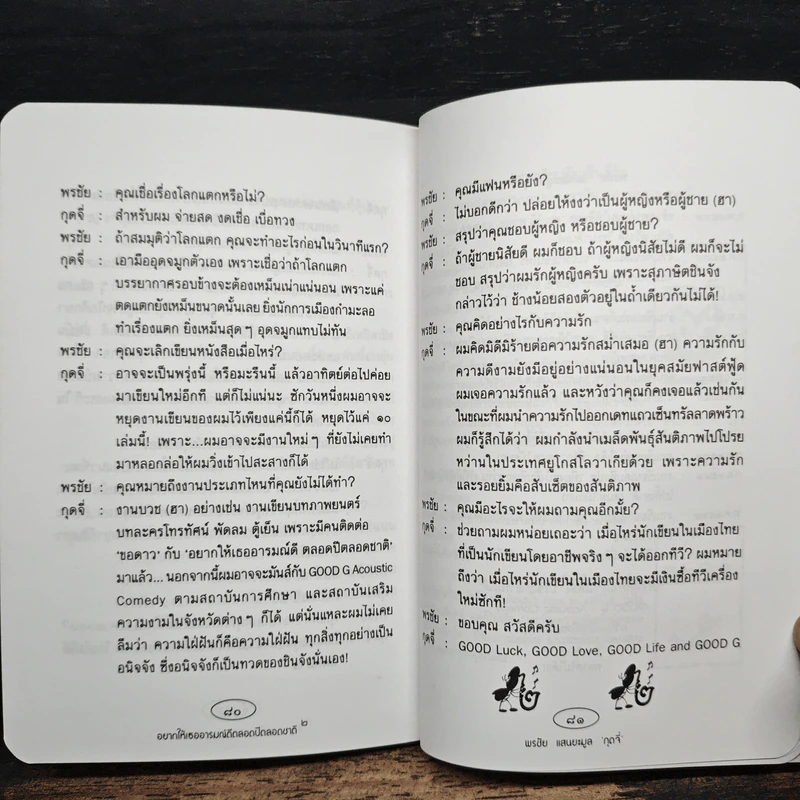 พรชัย : คุณเชื่อเรื่องโลกแตกหรือไม่?
กุดจี่ : สำหรับผม จ่ายสด งดเชื่อ เบื่อทวง
พรชัย : ถ้าสมมุติว่าโลกแตก คุณจะทำอะไรก่อนในวินาทีแรก?
กุดจี่ : เอามืออุดจมูกตัวเอง เพราะเชื่อว่าถ้าโลกแตก
บรรยากาศรอบข้างจะต้องเหม็นเน่าแน่นอน เพราะแค่
ตดแตกยังเหม็นขนาดนั้นเลย ยิ่งนักการเมืองกำมะลอ
ทำเรื่องแตก ยิ่งเหม็นสุด ๆ อุดจมูกแทบไม่ทัน
พรชัย : คุณจะเลิกเขียนหนังสือเมื่อไหร่?
กุดจี่ : อาจจะเป็นพรุ่งนี้ หรือมะรืนนี้ แล้วอาทิตย์ต่อไปค่อย
มาเขียนใหม่อีกที แต่ก็ไม่แน่นะ ซักวันหนึ่งผมอาจจะ
หยุดงานเขียนของผมไว้เพียงแค่นี้ก็ได้ หยุดไว้แค่ ๑๐
เล่มนี้! เพราะ...ผมอาจจะมีงานใหม่ ๆ ที่ยังไม่เคยทำ
มาหลอกล่อให้ผมวิ่งเข้าไปสะสางก็ได้
พรชัย : คุณหมายถึงงานประเภทไหนที่คุณยังไม่ได้ทำ?
กุดจี่ : งานบวช (ฮา) อย่างเช่น งานเขียนบทภาพยนตร์
บทละครโทรทัศน์ พัดลม ตู้เย็น เพราะมีคนติดต่อ
'ขอดาว' กับ 'อยากให้เธออารมณ์ดี ตลอดปีตลอดชาติ'
มาแล้ว... นอกจากนี้ผมอาจจะมันส์กับ GOOD G Acoustic
Comedy ตามสถาบันการศึกษา และสถาบันเสริม
ความงามในจังหวัดต่าง ๆ ก็ได้ แต่นั่นแหละผมไม่เคย
ลืมว่า ความใฝ่ฝันก็คือความใฝ่ฝัน ทุกสิ่งทุกอย่างเป็น
อนิจจัง ซึ่งอนิจจังก็เป็นทวดของชินจังนั่นเอง!
๘๐
อยากให้เธออารมณ์ดีตลอดปีตลอดชาติ ๒
พรชัย : คุณมีแฟนหรือยัง?
กุดจี่ : ไม่บอกดีกว่า ปล่อยให้งงว่าเป็นผู้หญิงหรือผู้ชาย (ฮา)
พรชัย : สรุปว่าคุณชอบผู้หญิง หรือชอบผู้ชาย?
กุดจี่ : ถ้าผู้ชายนิสัยดี ผมก็ชอบ ถ้าผู้หญิงนิสัยไม่ดี ผมก็จะไม่
ชอบ สรุปว่าผมรักผู้หญิงครับ เพราะสุภาษิตชินจัง
กล่าวไว้ว่า ช้างน้อยสองตัวอยู่ในถ้ำเดียวกันไม่ได้!
พรชัย : คุณคิดอย่างไรกับความรัก
กุดจี่ : ผมคิดมิดีมิร้ายต่อความรักสม่ำเสมอ (ฮา) ความรักกับ
ความดีงามยังมีอยู่อย่างแน่นอนในยุคสมัยฟาสต์ฟู้ด
ผมเจอความรักแล้ว และหวังว่าคุณก็คงเจอแล้วเช่นกัน
ในขณะที่ผมนำความรักไปออกเดทแถวเซ็นทรัลลาดพร้าว
ผมก็รู้สึกได้ว่า ผมกำลังนำเมล็ดพันธุ์สันติภาพไปโปรย
หว่านในประเทศยูโกสโลวาเกียด้วย เพราะความรัก
และรอยยิ้มคือสับเซ็ตของสันติภาพ
พรชัย : คุณมีอะไรจะให้ผมถามคุณอีกมั้ย?
กุดจี่ : ช่วยถามผมหน่อยเถอะว่า เมื่อไหร่นักเขียนในเมืองไทย
ที่เป็นนักเขียนโดยอาชีพจริง ๆ จะได้ออกทีวี? ผมหมาย
ถึงว่า เมื่อไหร่นักเขียนในเมืองไทยจะมีเงินซื้อทีวีเครื่อง
ใหม่ซักที!
พรชัย : ขอบคุณ สวัสดีครับ
กุดจี่ : GOOD Luck, GOOD Love, GOOD Life and GOOD G
๘๑
พรชัย แสนยะมูล 'กุดจี่'